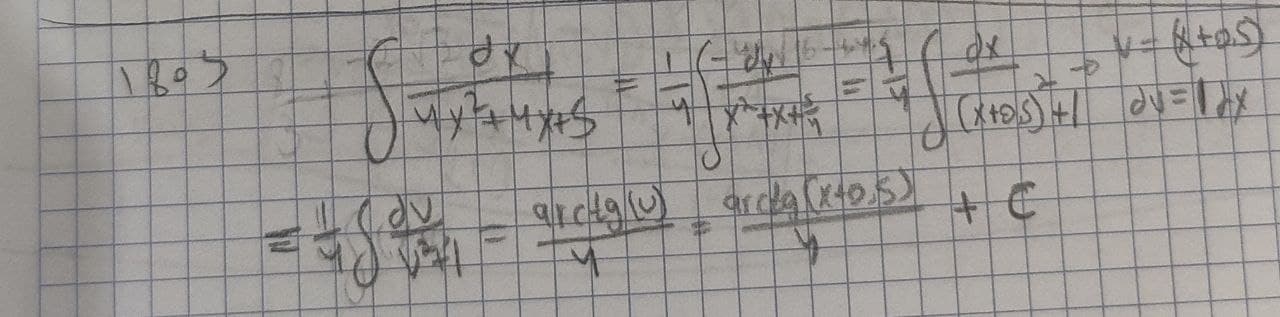 1805 ∫ dx/(4x²+4x+5) = 1/4 ∫ dx/(x²+x+5/4) = 1/4 ∫ dx/((x+0,5)²+1) → v = (x+0,5)
dv = 1dx
= 1/4 ∫ dv/(v²+1) = arctg(v)/4 = arctg(x+0,5)/4 + C